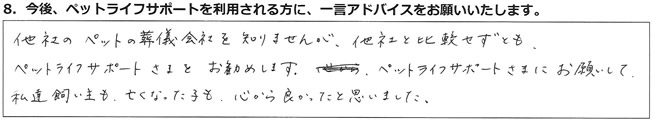 8. 今後、ペットライフサポートを利用される方に、一言アドバイスをお願いいたします。
他社のペットの葬儀会社を知りませんが、他社と比較せずとも、
ペットライフサポートさまをお勧めします。、ペットライフサポートさまにお願いして、
私達飼い主も、亡くなった子も、心から良かったと思いました。